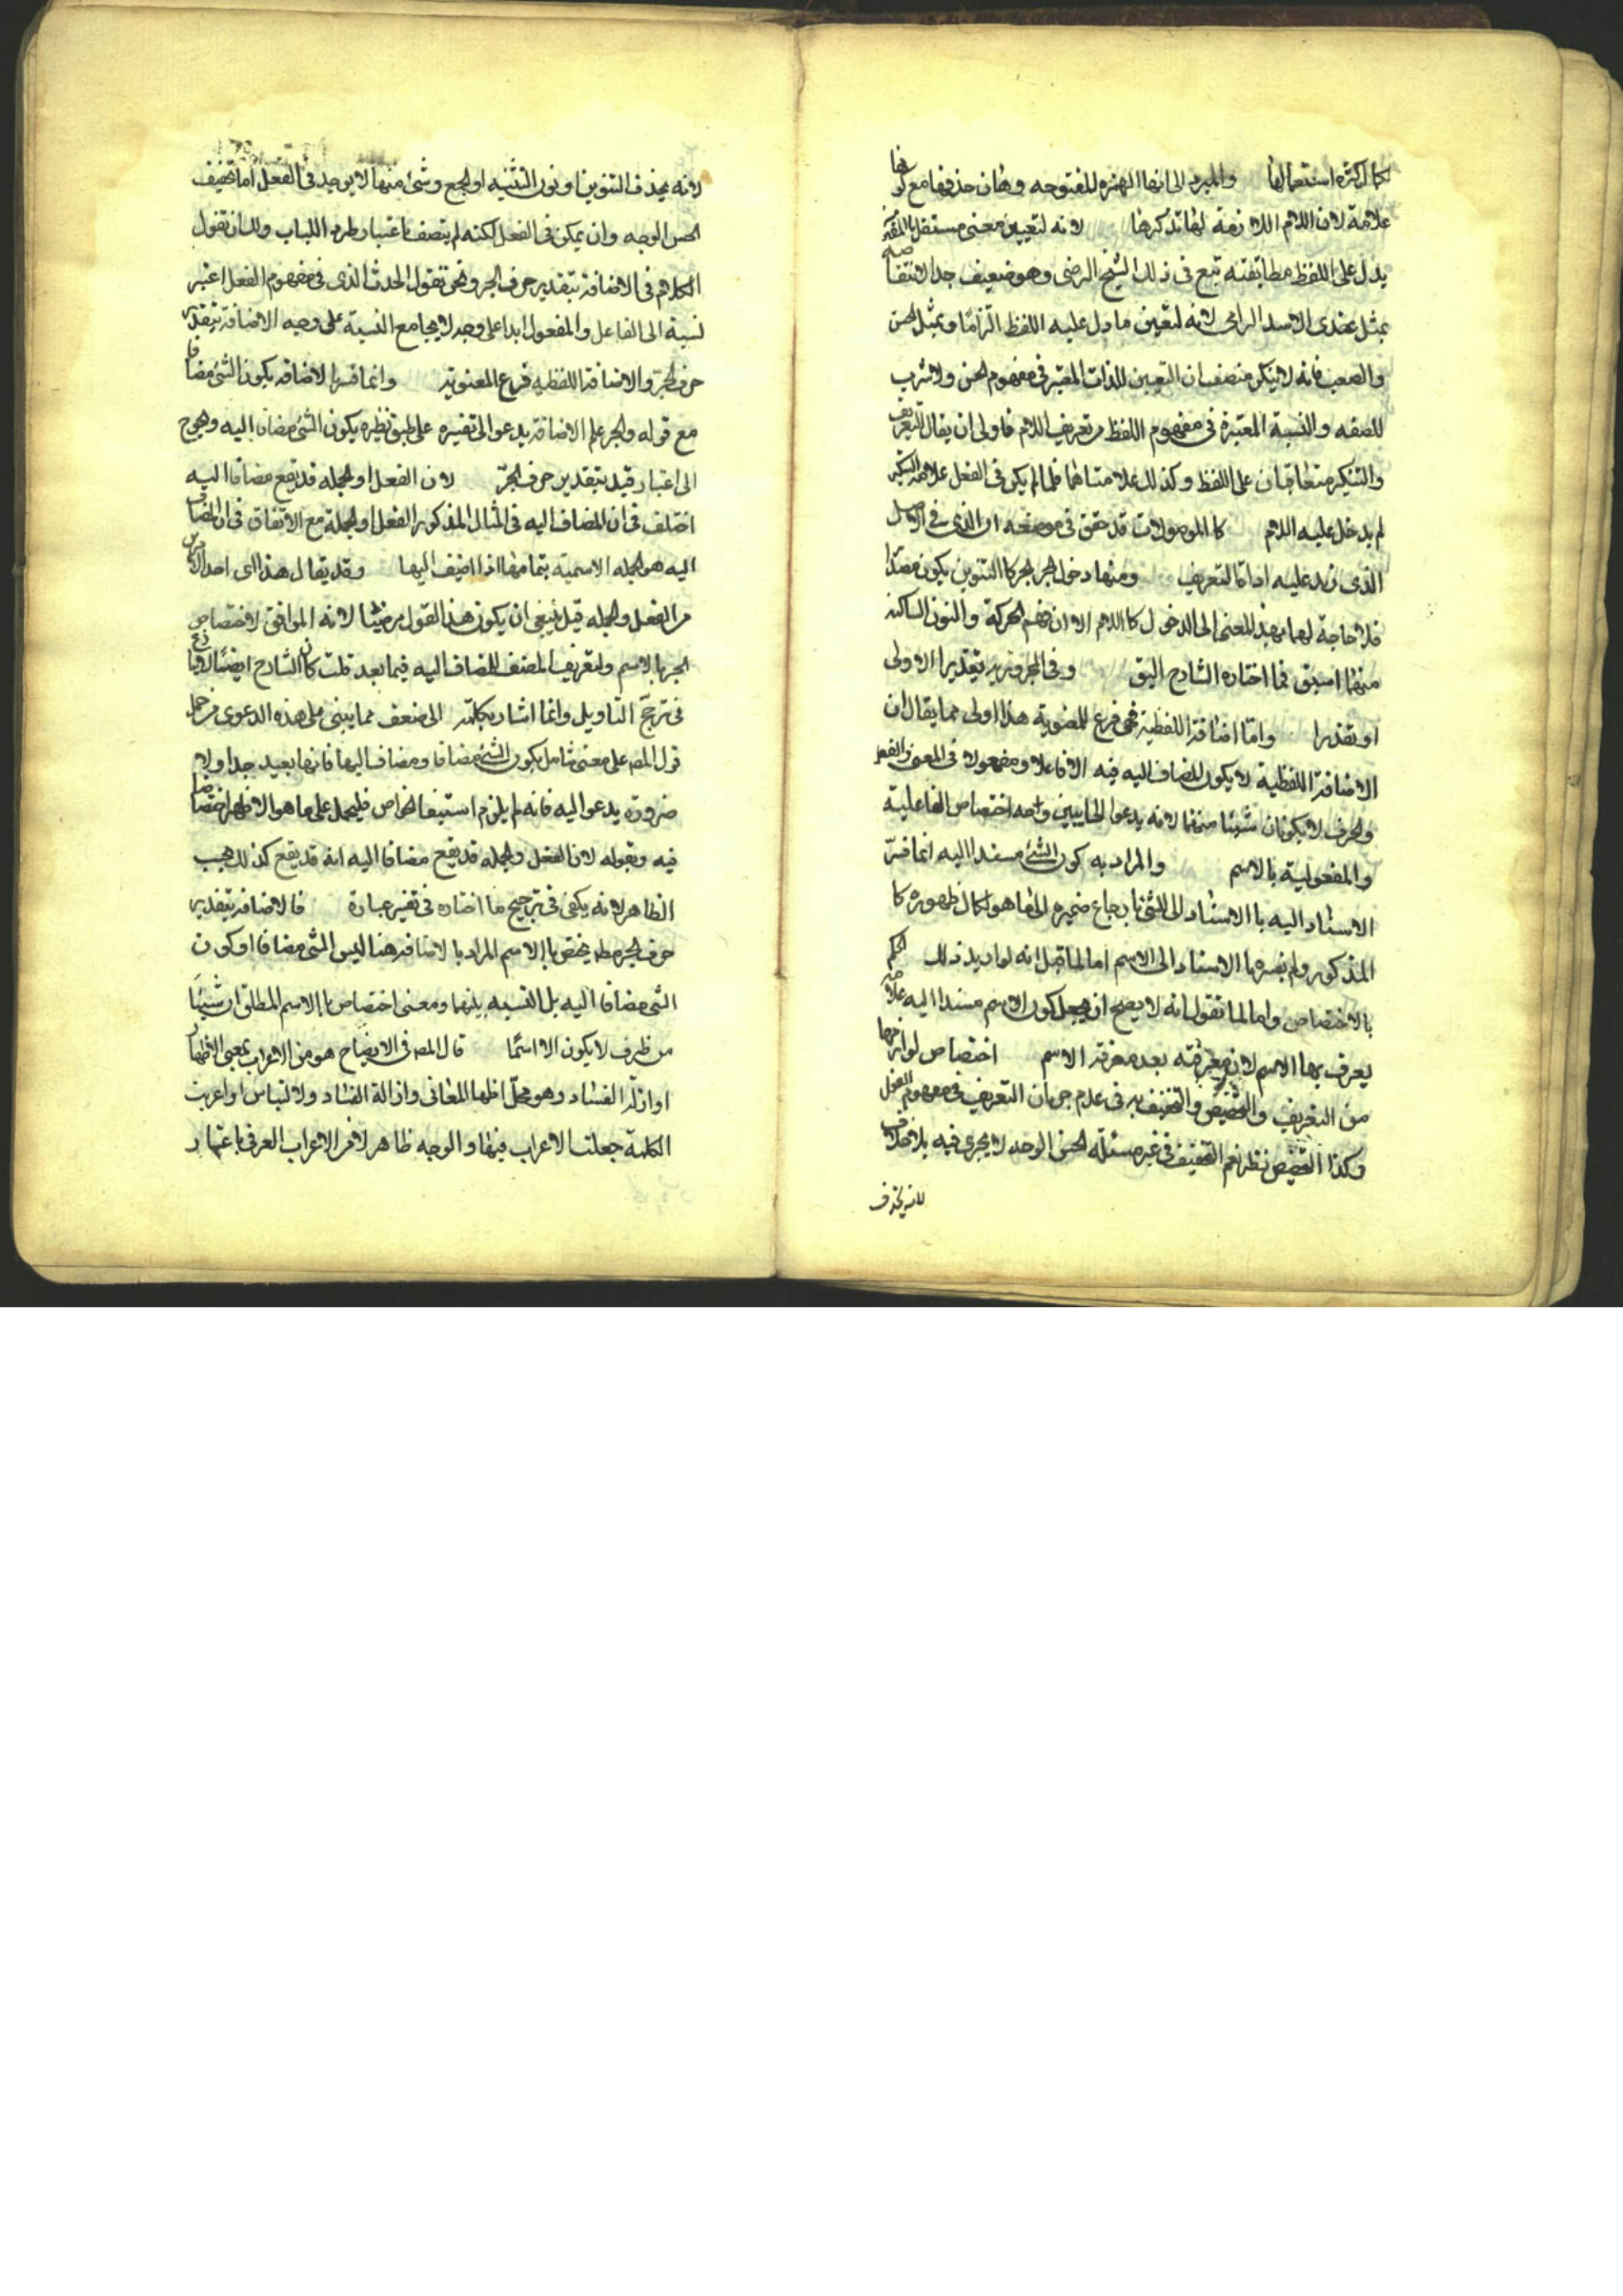 لكثرة استعمالها والمبرد الى انها الهمزة المفتوحة وهان حذفها مع كونها
علامة لان اللام اللازمة لها تذكرها لانه لتعيين معنى مستقل بالمفهومية
يدل على اللفظ مطابقته تبع في ذلك الشيخ الرضى وهو ضعيف جدا لانتقاضه
بمثل عندى الاسد الرامى لانه لتعيين ما دل عليه اللفظ التزاما وبمثل الحسن
والصعب فانه لا ينكر منصف ان التعيين للذات المعتبر في مفهوم الحسن ولا شرب
للصفه والنسبة المعتبرة في مفهوم اللفظ من تعريف اللام فاولى ان يقال التعريف
والتنكير متعاقبان على اللفظ وكذلك علامتاهما فلما لم يكن في الفعل علامة التنكير
لم يدخل عليه اللام كالموصولات قد حقق في موضعه ان الذى في الاصل
الذى زيد عليه اداة التعريف ومنها دخول الجر الجر كالتنوين يكون مقتدا
فلا حاجة لهما بهذا المعنى الى الدخول كاللام الا ان فهم الحركة والنون الساكنة
منهما اسبق فما اختاره الشارح اليق وفي المجرور به تقديرا الاولى
او تقديرا واما اضافة اللفظية فهى فرع للمعنوية هذا اولى مما يقال ان
الاضافة اللفظية لا يكون المضاف اليه فيه الا فاعلا ومفعولا في المعنى والفعل
والحرف لا يكونان شيئا منهما لانه يدعوا الى تبيين وجه اختصاص الفاعلية
والمفعولية بالاسم والمراد به كون الشئ مسندا اليه انما فسر
الاسناد اليه بالاسناد الى الشئ بارجاع ضميره الى ما هو لكمال ظهوره كا
المذكور ولم يفسرها الاسناد الى الاسم اما لما قيل انه لو اريد ذلك الحكم
بالاختصاص واما لما نقول انه لا يصح ان يجعل كون الاسم مسندا اليه علامة
يعرف بها الاسم لان معرفته بعد معرفة الاسم اختصاص لوازمها
من التعريف والتخصيص والتخفيف به في عدم جريان التعريف في مفهوم الفعل
وكذا التخصيص نظر نعم التخفيف في غير مسئلة الحسن الوجه لا يجرى فيه بلا خلاف
لانه يحذف
لانه يحذف التنوين او نون التثنيه او الجمع وشئ منها لا يوجد في الفعل اما تخفيف
الحسن الوجه وان يمكن في الفعل لكنه لم يتصف باعتبار طرد اللباب ولك ان تقول
الكلام في الاضافة بتقدير حرف الجر ونحن نقول الحدث الذى في مفهوم الفعل اعتبر
نسبة الى الفاعل والمفعول ابدا على وجه لا يجامع النسبة على وجه الاضافة بتقدير
حرف الجر والاضافة اللفظيه فرع المعنوية وانما فسر الاضافه بكون الشئ مضافا
مع قوله والجر علم الاضافة يدعو الى تفسيره على طبق نظيره بكون الشئ مضافا اليه وهو ح
الى اعتبار قيد بتقدير حرف الجر لان الفعل او الجملة قد يقع مضافا اليه
اختلف في ان المضاف اليه في المثال المذكور الفعل او الجملة مع الاتفاق في ان المضاف
اليه هو الجمله الاسمية بتمامها اذا اضيف اليها وقد يقال هذا اى احد الامرين
من الفعل والجمله قيل ينبغي ان يكون هذا القول مرضيا لانه الموافق لاختصاص
الجر بالاسم ولتعريف المصنف المضاف اليه فيما بعد قلت كان الشارح ايضا
في ترجح التاويل وانما اشار بكلمة الى ضعف مما يبنى على هذه الدعوى من حمل
قول المص على معنى شامل بكون الشئ مضافا ومضافا اليها فانها بعيد جدا ولا
ضرورة يدعو اليه فانه لم يلزم استيفا الخواص فليحمل على ما هو الاظهر اختصاصا
فيه وبقوله لان الفعل والجمله قد يقع مضافا اليه انه قد يقع كذلك بحسب
الظاهر لانه يكفى في ترجيح ما اختاره في تفسير عبارة فالاضافة بتقدير
حرف الجر مطه يختص بالاسم المراد بالاضافة هنا ليس الشئ مضافا او كون
الشئ مضافا اليه بل النسبه بينهما ومعنى اختصاص بالاسم المطلق ان شيئا
من ظرف لا يكون الا اسما قال المص في الايضاح هو من الاعراب بمعنى الاظهار
او ازلة الفساد وهو محل اظها المعانى وازالة الفساد ولالتباس او اعربت
الكلمة جعلت الاعراب فيها والوجه ظاهر لافر الاعراب العرفى باعتبار